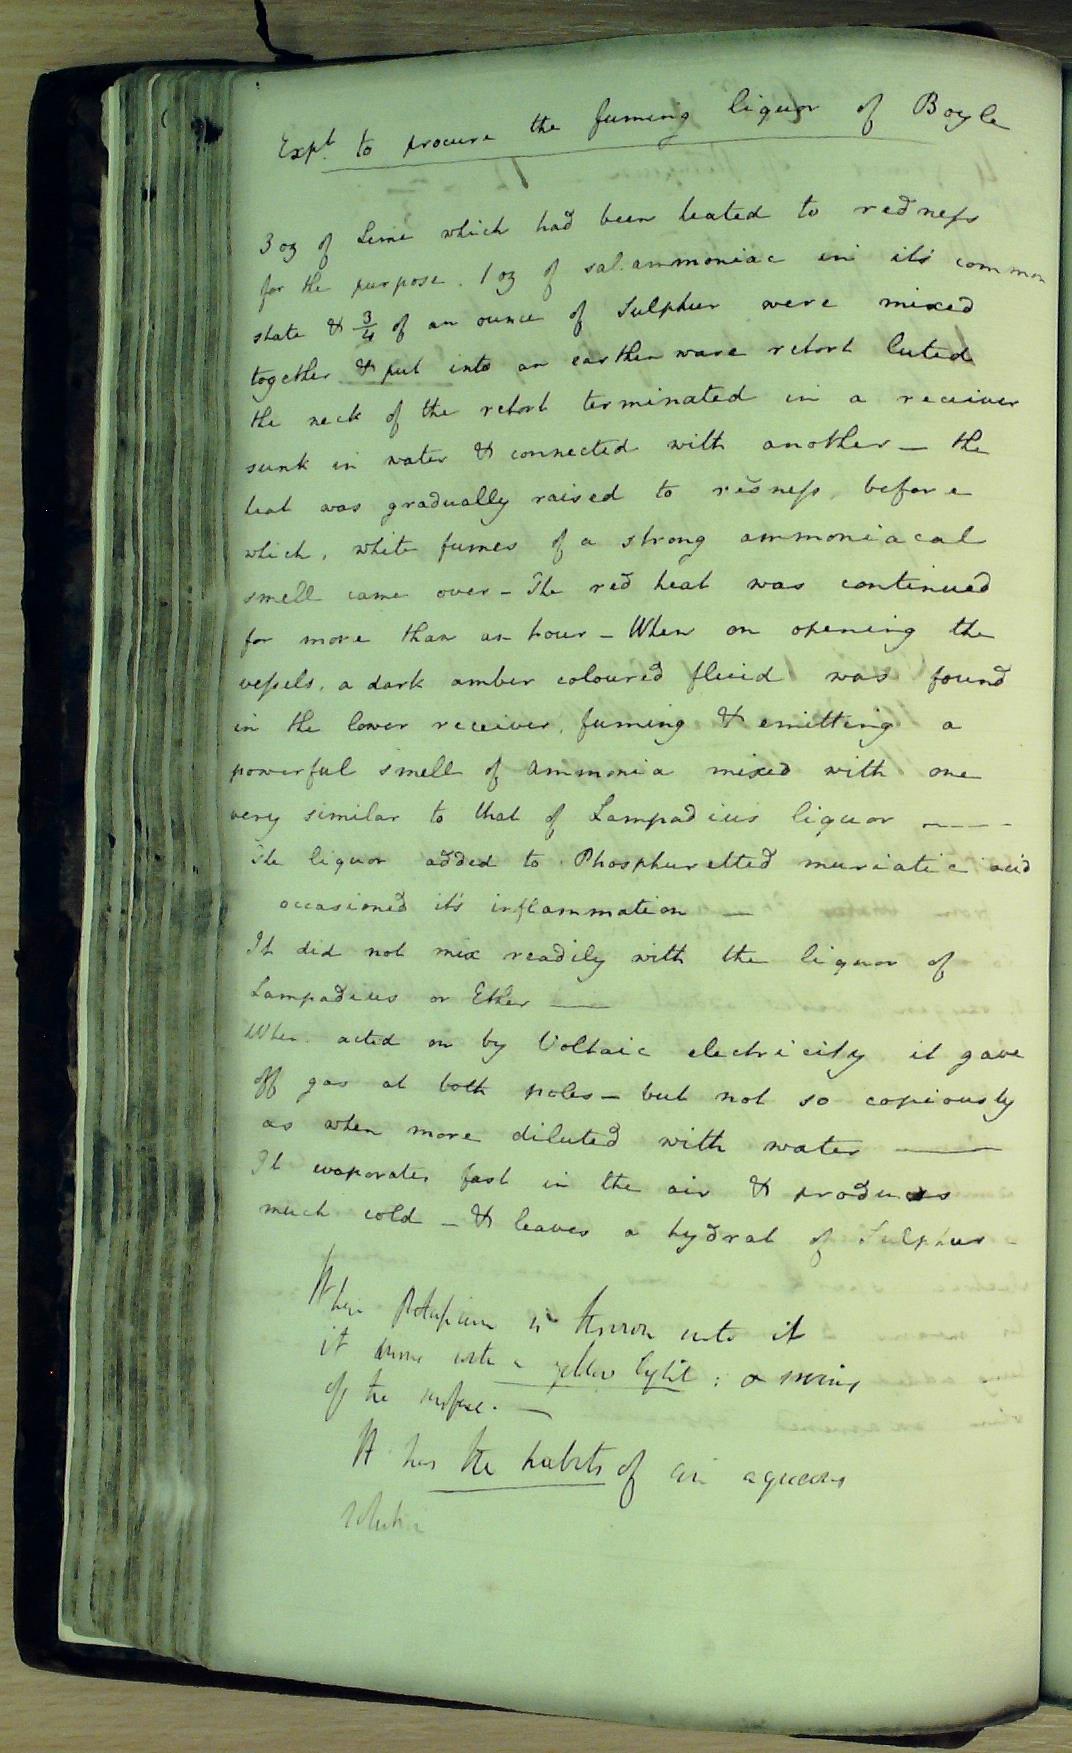 Expt. to procure the fuming liquor of Boyle
3 oz of Lime which had been heated to redness
for the purpose. 1 oz of sal. ammoniac in it's common
state & 3/4 of an ounce of Sulphur were mixed
together & put into an earthen ware retort luted
the neck of the retort terminated in a receiver
sunk in water & connected with another — the
heat was gradually raised to redness, before
which, white fumes of a strong ammoniacal
smell came over – The red heat was continued
for more than an hour – When on opening the
vessels, a dark amber coloured fluid was found
in the lower receiver, fuming & emitting a
powerful smell of ammonia mixed with one
very similar to that of Lampadius liquor ———
The liquor added to Phosphuretted muriatic acid
occasioned it's inflammation —
It did not mix readily with the liquor of
Lampadius or Ether ——
When acted on by Voltaic electricity it gave
off gas at both poles – but not so copiously
as when more diluted with water ———
It evaporates fast in the air & produces
much cold – & leaves a hydrat of Sulphur –
When Potassium is thrown into it
it burns with a yellow light: &
of the surface. —
It has the habits of an aqueous
solution